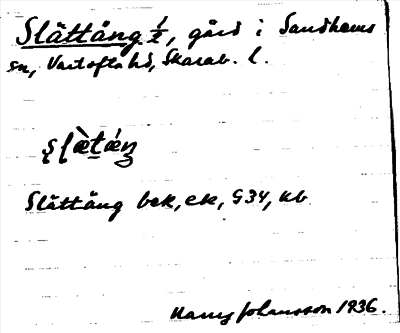 Slättäng 1/2, gård i Sandhems
sn, Vartofta hd, Skarab. l.
Slättäng bek, ek, G34, kb
Harry Johansson 1936.